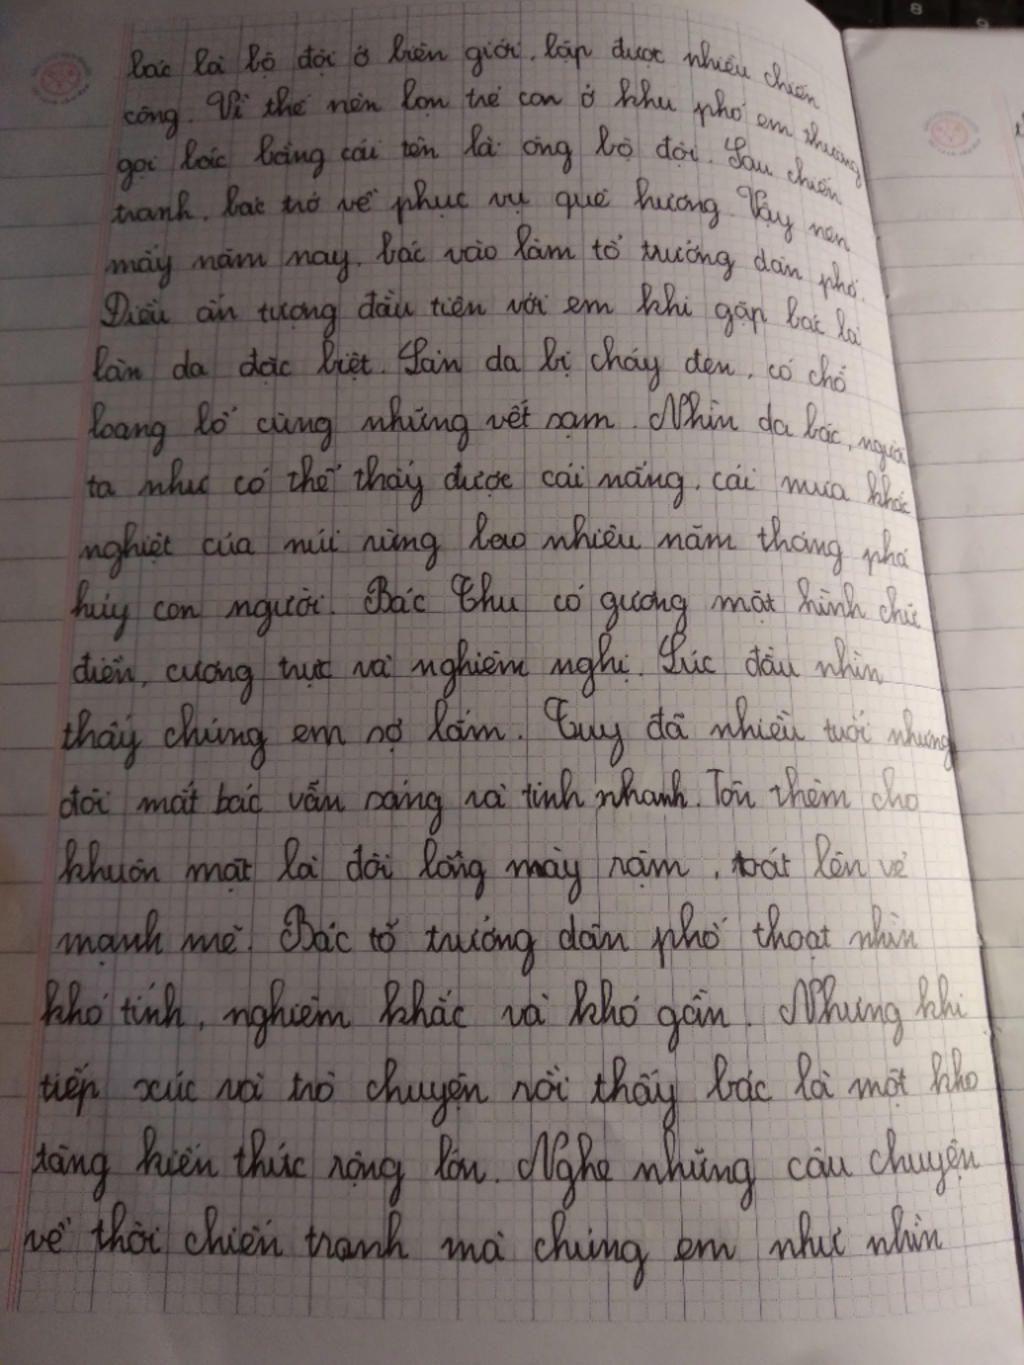 bác là bộ đội ở biên giới, lập được nhiều chiến
công. Vì thế nên bọn trẻ con ở khu phố em thường
gọi bác bằng cái tên là ông bộ đội. Sau chiến
tranh, bác trở về phục vụ quê hương. Vậy nên
mấy năm nay, bác vào làm tổ trưởng dân phố.
Điều ấn tượng đầu tiên với em khi gặp bác là
làn da đặc biệt. Làn da bị cháy đen, có chỗ
loang lổ cùng những vết sạm. Nhìn da bác, người
ta như có thể thấy được cái nắng, cái mưa khắc
nghiệt của núi rừng bao nhiêu năm tháng phá
hủy con người. Bác Thu có gương mặt hình chữ
điền, cương trực và nghiêm nghị. Lúc đầu nhìn
thấy chúng em sợ lắm. Tuy đã nhiều tuổi nhưng
đôi mắt bác vẫn sáng và tinh nhanh. Tôn thêm cho
khuôn mặt là đôi lông mày rậm, toát lên vẻ
mạnh mẽ. Bác tổ trưởng dân phố thoạt nhìn
khó tính, nghiêm khắc và khó gần. Nhưng khi
tiếp xúc và trò chuyện rồi thấy bác là một kho
tàng kiến thức rộng lớn. Nghe những câu chuyện
về thời chiến tranh mà chúng em như nhìn